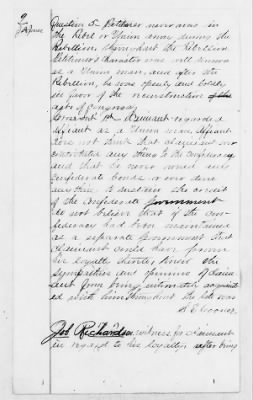 Question 5 - Petitioner never was in
the Rebel or Union army during the
Rebellion, throughout the Rebellion
Petitioner's character was well known
as a Union man, and after the
Rebellion, he was openly and boldly
in favor of the reconstruction
acts of Congress
Cross Int 1st Claimant regarded
affiant as a Union man, affiant
does not think that claimant ever
contributed any thing to the Confederacy
and that he never owned any
Confederate bonds or ever done
any thing to sustain the credit
of the Confederate government
do not believe that if the Con-
federacy had been maintained
as a separate government that
claimant could have proven
his loyalty thereto, knew the
sympathies and opinions of claim-
ant from being intimately acquaint-
ed with him throughout the late war
Cooner
Job Richardson witness for claimant
in regard to his loyalty, after being